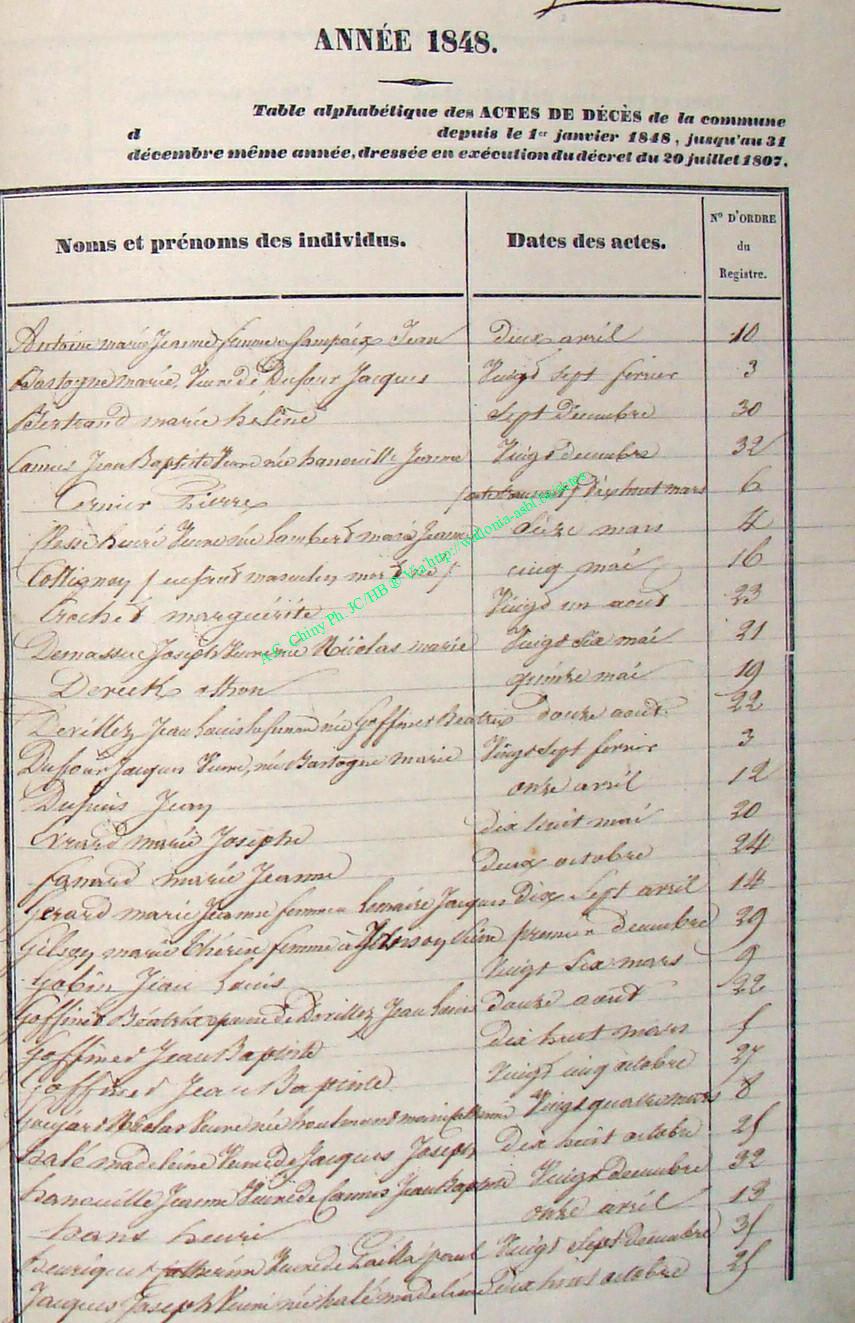 ANNÉE 1848.
Table alphabétique des ACTES DE DÉCÈS de la commune
d depuis le 1er janvier 1848, jusqu'au 31
décembre même année, dressée en exécution du décret du 20 juillet 1807.
Noms et prénoms des individus. Dates des actes. N° D'ORDRE
du
Registre.
Antoine marie Jeanne femme Jean deux avril 10
Bastogne marie Veuve de Dufour Jacques Vingt sept fevrier 3
Bertrand marie helène Sept Decembre 30
Camus Jean Baptiste Veuve née hanouille Jeanne Vingt decembre 32
Cornier Pierre Dix huit mars 6
henri Veuve née Lambert marie Jeanne mars 4
Collignon enfant masculin mort né cinq mai 16
Crochet marguérite Vingt un aout 23
Joseph Veuve née Nicolas marie Vingt six mai 21
quinze mai 19
Devillez Jean Louis femme née Goffinet Béatrix douze aout 22
Dufour Jacques Veuve, née Bastogne marie Vingt sept fevrier 3
Dupuis Jean onze avril 12
Evrard marie Josephe dix huit mai 20
fanard marie Jeanne deux octobre 24
Gerard marie Jeanne femme Lemaire Jacques dix sept avril 14
Gilson marie thérèse femme à premier decembre 29
Gobin Jean Louis Vingt six mars 9
Goffinet Béatrix épouse de Devillez Jean Louis douze août 22
Goffinet Jean Baptiste dix huit mars 5
Goffinet Jean Baptiste Vingt cinq octobre 27
Nicolas Veuve née Vingt quatre mars 8
halé madeleine Veuve de Jacques Joseph dix huit octobre 25
hanouille Jeanne Veuve de Camus Jean Baptiste Vingt decembre 32
hans henri onze avril 13
henriquet Veuve de paul Vingt sept decembre 35
Jacques Joseph Veuve née halé madeleine dix huit octobre 25
A.C. Chiny Ph. JC/HB ® Via http://wallonia-asbl.be/actes